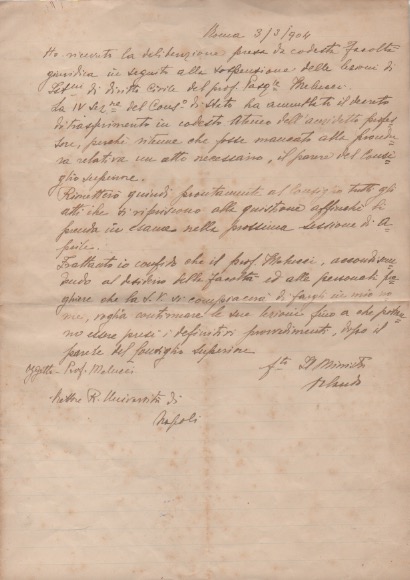 Roma 3/3/904
Ho ricevuto la deliberazione presa da codesta Facoltà
giuridica in seguito alla sospensione delle lezioni di
Ist.ni di Diritto Civile del prof. Pasq.le Melucci.
La IV Sez.ne del Cons.o di Stato ha annullato il decreto
di trasferimento in codesto Ateneo dell'anzidetto profes
sore, perchè ritenne che fosse mancato alla procedu
ra relativa un atto necessario, il parere del Consi
glio Superiore.
Rimetterò quindi prontamente al Consiglio tutti gli
atti che si riferiscono alla quistione affinchè li
prenda in esame nella prossima sessione di A-
prile.
Frattanto io confido che il prof. Melucci, accondiscen
dendo al desiderio della Facoltà ed alle personali pre
ghiere che la S.V. si compiacerà di fargli in mio no
me, voglia continuare le sue lezioni fino a che potran
no essere presi i definitivi provvedimenti, dopo il
parere del Consiglio Superiore
f.to Il Ministro
Orlando
Oggetto - Prof. Melucci
Rettore R. Università di
Napoli